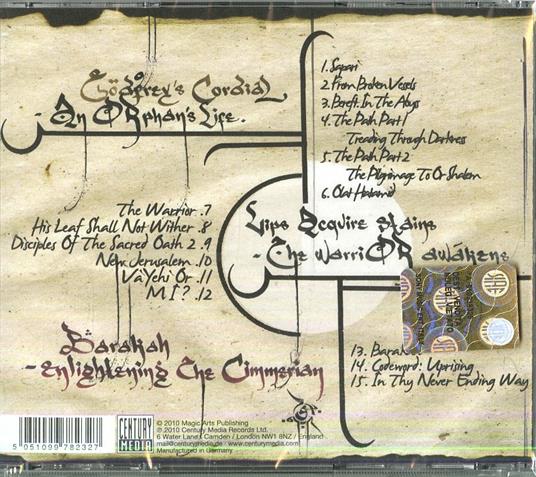 Godfrey's Cordial
- An ORphan's Life.
1. Sapari
2. From Broken Vessels
3. Bereft In The Abyss
4. The Path Part 1
Treading Through Darkness
5. The Path Part 2
The Pilgrimage To Or Shalem
6. Olat Hatamid
Lips Acquire Stains
- The WarriOR awakens
The Warrior .7
His Leaf Shall Not Wither .8
Disciples Of The Sacred Oath 2 .9
New Jerusalem .10
Va'Yehi Or .11
M I ? .12
Barakah
- Enlightening The Cimmerian
13. Barakah
14. Codeword: Uprising
15. In Thy Never Ending Way
5 051099 782327
CENTURY MEDIA
℗ 2010 Magic Arts Publishing
© 2010 Century Media Records Ltd.
6 Water Lane / Camden / London NW1 8NZ / England
mail@centurymedia.de . www.centurymedia.com
Manufactured in Germany